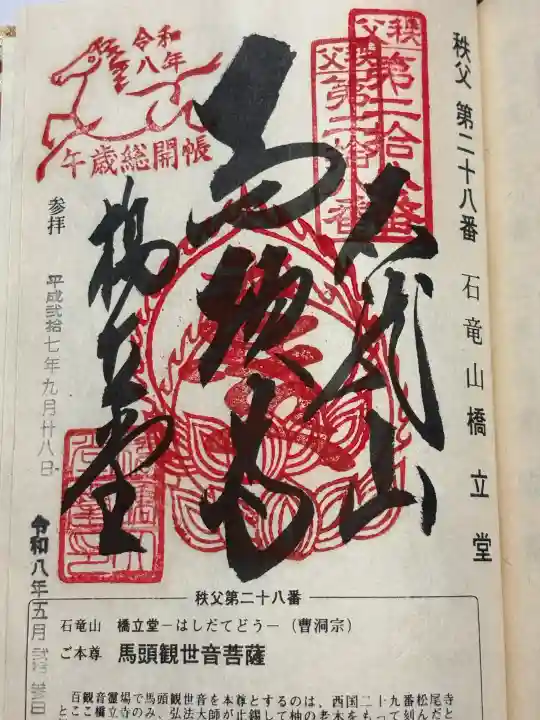 秩父 第二十八番 石竜山橋立堂
秩父
第二拾八番
秩父
第二拾八番
令和
八年
午歳総開帳
石龍山
馬頭尊
橋立堂
参拝
平成弐拾七年九月廿八日
令和八年五月弐拾参日
秩父第二十八番
石竜山 橋立堂―はしだてどう―(曹洞宗)
ご本尊 馬頭観世音菩薩
百観音霊場で馬頭観世音を本尊とするのは、西国二十九番松尾寺
とここ橋立寺のみ、弘法大師が止錫して柚の老木を